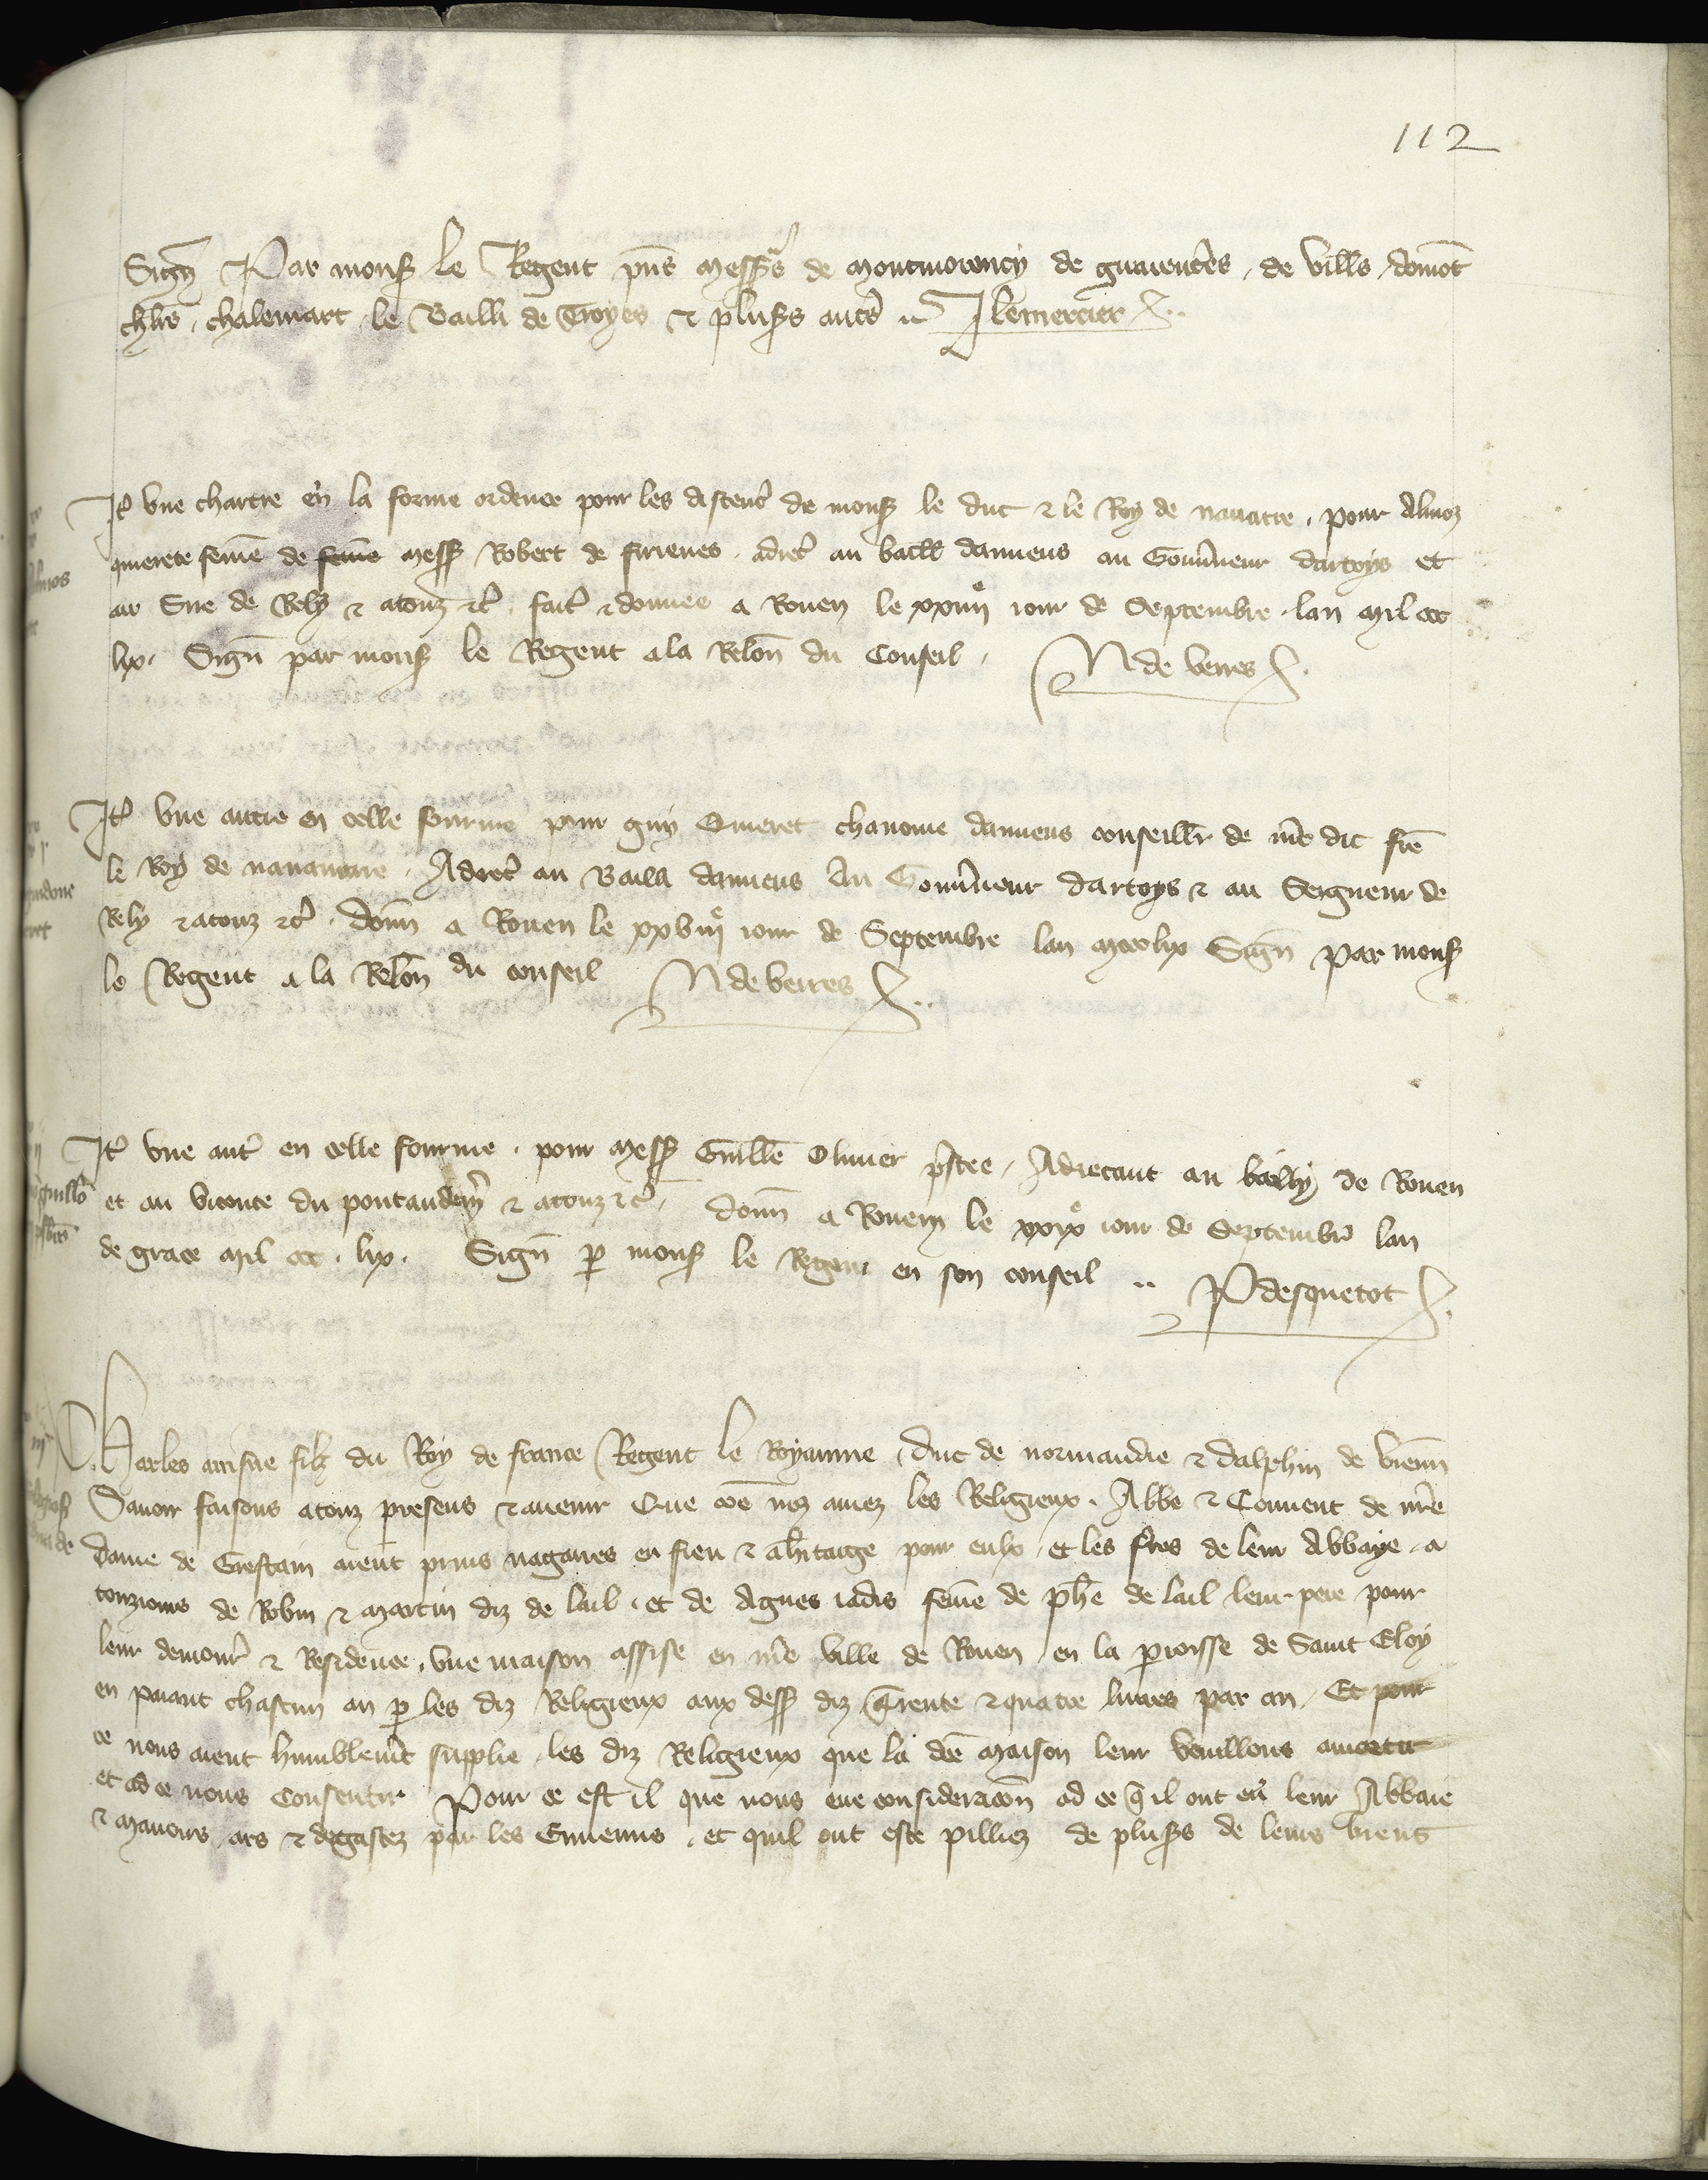 112
Sign̄ Par mons̄ le Regent p̄ns mess̄rs de montmorency de guarenter̄s, de villꝭ, domōt
ch̄lrs, chalemart, le Bailli de Troyes & plus̄s autr̄s .. J lemercier
It̄ vne chartre en la forme ordenee pour les assent̄ de mons̄ le duc & le Roy de nauarre, pour
quierete fem̄e de mess̄ Robert de firienes, adrec̄ au baill damiens au Gouūneur dartoys et
au Sire de Rely & atouz &c̄, fait̄ & donnee a Rouen le xxiiijͤ iour de Septembre, lan mil ccc
lix. Sign̄ par mons̄ le Regent a la Relōn du Conseil. N de veires
It̄ vne autre en celle fourme pour guy Quieret chanoine damiens conseillr̄ de nr̄e dit frē
le Roy de nauarre. Adrec̄ au Bailli damiens Au Gouūneur dartoys & au Seigneur de
Rely & atouz &c̄. don̄n a Rouen le xxviijͤ iour de Septembre lan mccclix Sign̄ par mons̄
le Regent a la Relōn du conseil N de veires
It̄ vne aut̄ en celle fourme, pour mess̄ Guill̄e Oliuier p̄stre, Adrecant au bailly de Rouen
et au viconte du pontaudem̄ & atouz &c̄. don̄n a Rouen le xxixͤ iour de Septembr̄ lan
de grace mil ccc. lix. Sign̄ p̱ mons̄ le Regent en son conseil .. P desquetot
Charles ainsne filz du Roy de france Regent le Royaume, duc de normandie & dalphin de vienn̄
Sauoir faisons atouz presens & auenir Que cōe noz amez les Religieux, Abbe & Conuent de nr̄e
dame de Grestain aient prins nagaires en fieu & ah̄itaige pour eulx et les frēs de leur Abbaye, a
touziours de Robin & martin diz de lail, et de Agnes iadis fem̄e de ph̄e de lail leur pere pour
leur demour̄ & Residence, vne maison assise en nr̄e ville de Rouen en la p̱roisse de Saint Eloy
en paiant chascun an p̱ les diz Religieux aux dess̄ diz trente & quatre liures par an, Et pour
ce nous aient humblem̄t supplie, les diz Religieux que la dc̄e maison leur vouillons amortir
et ad ce nous Consentir Pour ce est il que nous eue consideraciōn ad ce q̄ il ont eu leur Abbaie
& manoirs, ars & degastez par les Ennemis, et quil ont este pilliez de plus̄s de leurs biens